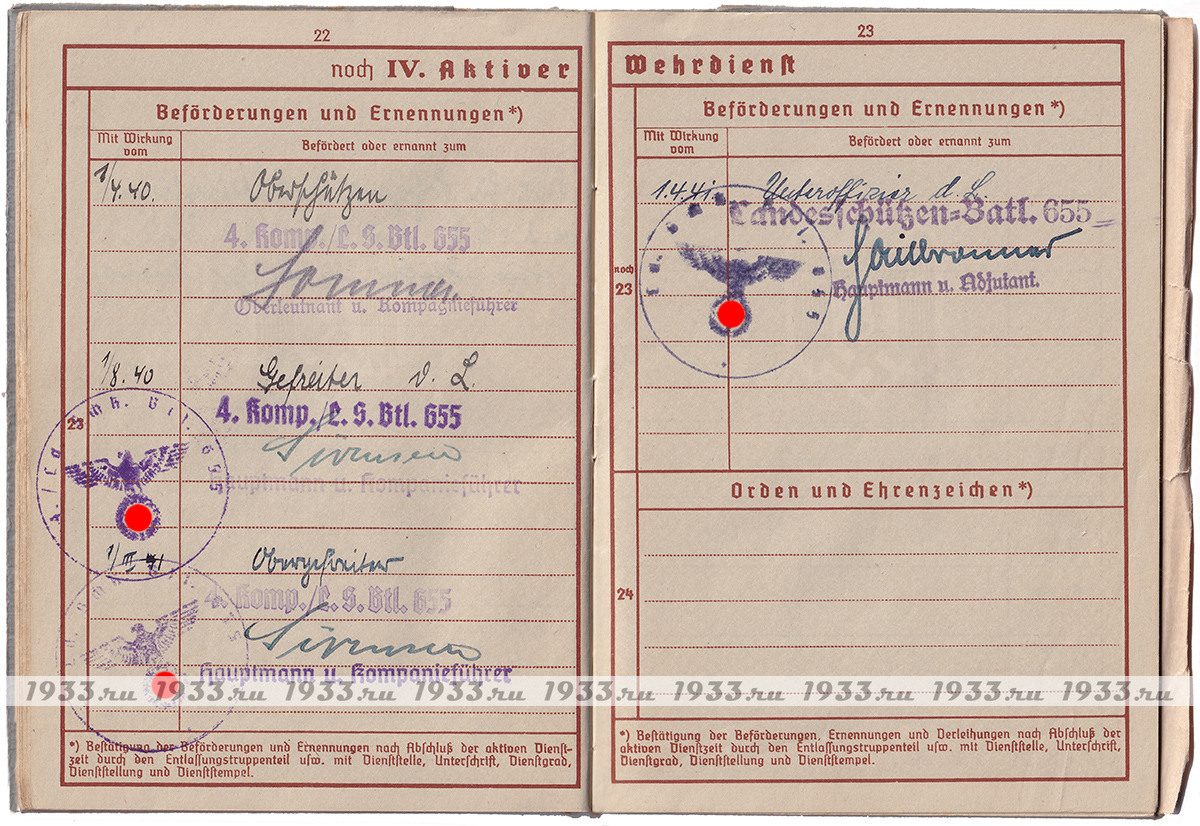 22
noch IV. Aktiver
Beförderungen und Ernennungen*)
Mit Wirkung vom
Befördert oder ernannt zum
1/4.40. Oberschützen
4. Komp./L. S. Btl. 655
Oberleutnant u. Kompagnieführer
1/8.40 Gefreiter d. L.
23
4. Komp./L. S. Btl. 655
Hauptmann u. Kompanieführer
1/III 41 Obergefreiter
4. Komp./L. S. Btl. 655
Hauptmann u. Kompanieführer
*) Bestätigung der Beförderungen und Ernennungen nach Abschluß der aktiven Dienst-
zeit durch den Entlassungstruppenteil usw. mit Dienststelle, Unterschrift, Dienstgrad,
Dienststellung und Dienststempel.
23
Wehrdienst
Beförderungen und Ernennungen*)
Mit Wirkung vom
Befördert oder ernannt zum
1.4.41. Unteroffizier d. L.
Landesschützen-Batl. 655
noch
23
Hauptmann u. Adjutant.
Orden und Ehrenzeichen*)
24
*) Bestätigung der Beförderungen, Ernennungen und Verleihungen nach Abschluß der
aktiven Dienstzeit durch den Entlassungstruppenteil usw. mit Dienststelle, Unterschrift,
Dienstgrad, Dienststellung und Dienststempel.
1933.ru 1933.ru 1933.ru 1933.ru 1933.ru 1933.ru 1933.ru 1933.ru 1933.ru